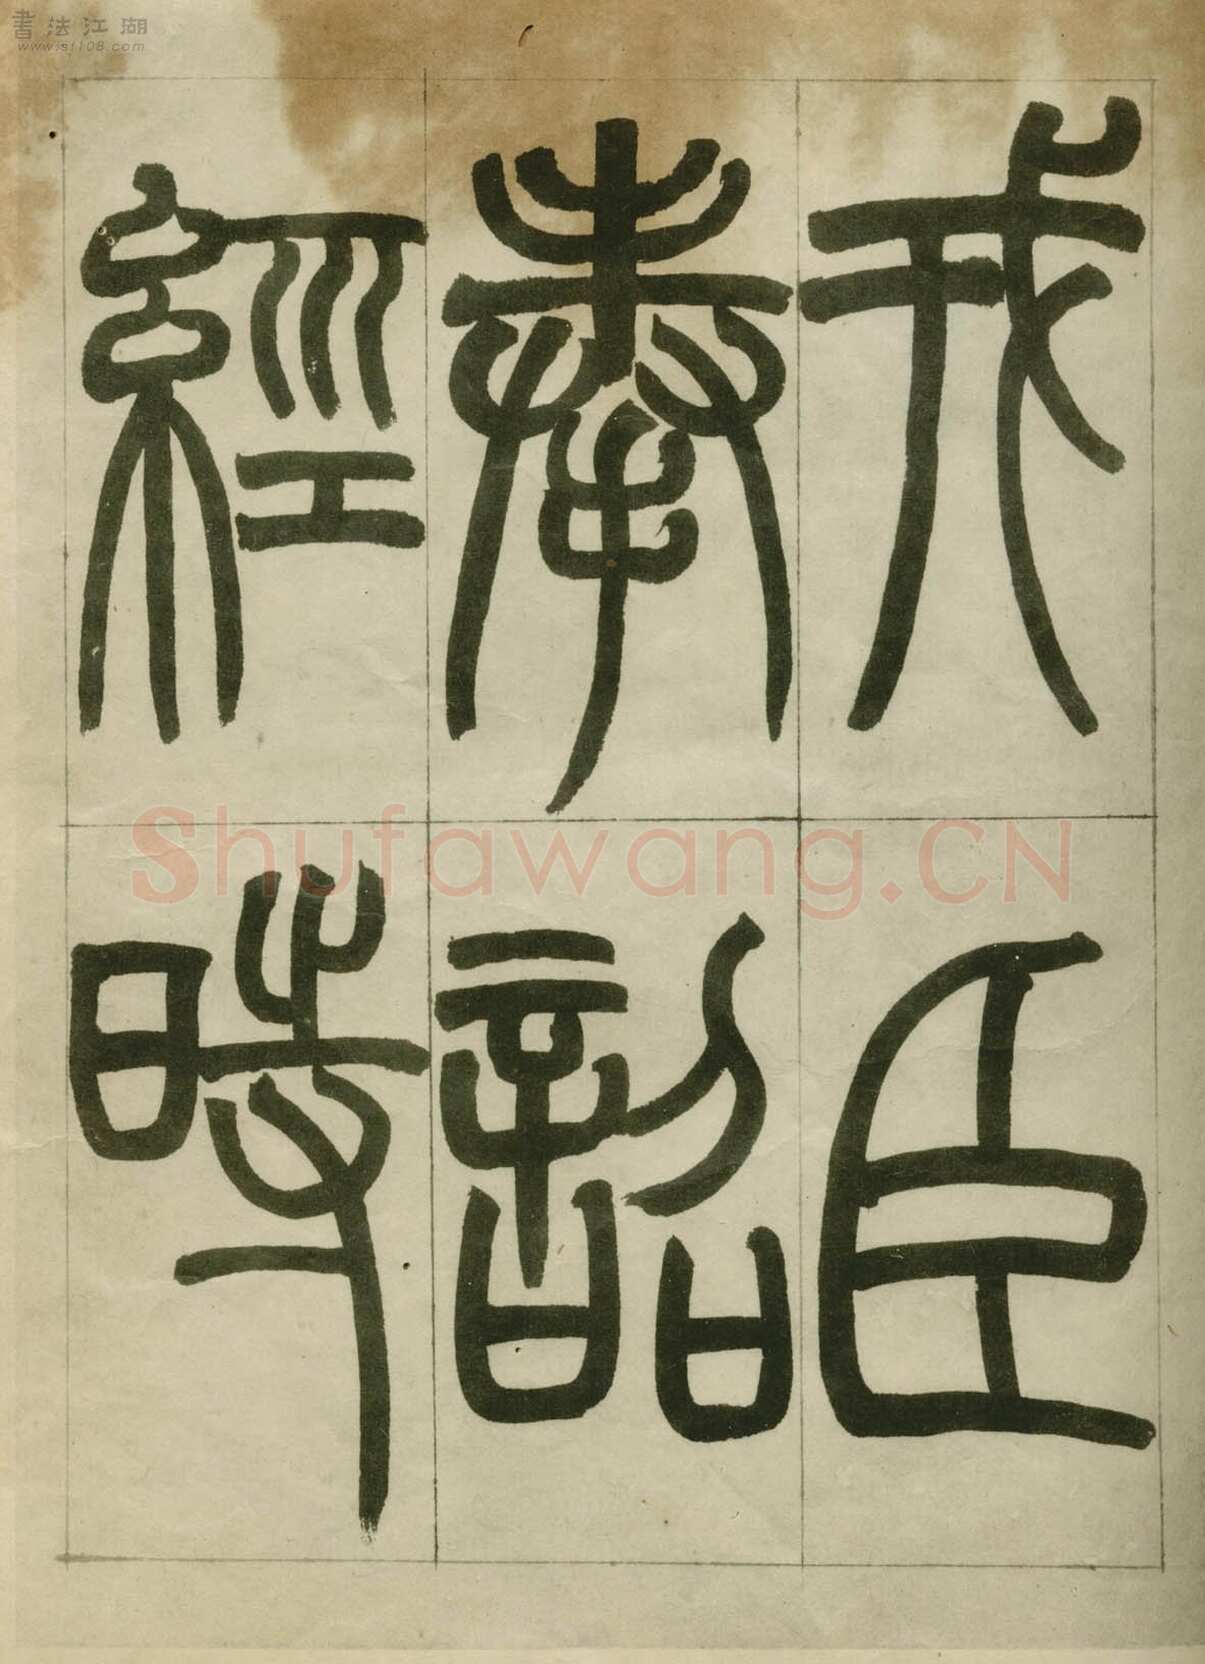 書法江湖
www.sf108.com
戎臣
奉詔
經時
Shufawang.CN